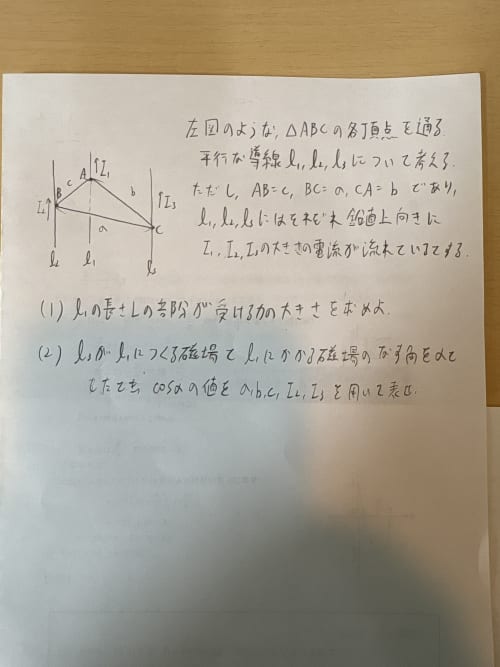 左図のような, △ABCの各頂点を通る
平行な導線l₁, l₂, l₃について考える.
ただし, AB=c, BC=a, CA=b であり,
l₁, l₂, l₃にはそれぞれ鉛直上向きに
I₁, I₂, I₃の大きさの電流が流れているとする.
A ↑I₁
c
B
b
↑I₃
I₂↑
a
C
l₂ l₁ l₃
(1) l₁の長さLの部分が受ける力の大きさを求めよ.
(2) l₃がl₁につくる磁場とl₁にかかる磁場のなす角をαと
したとき, cosαの値をa,b,c, I₂, I₃を用いて表せ.